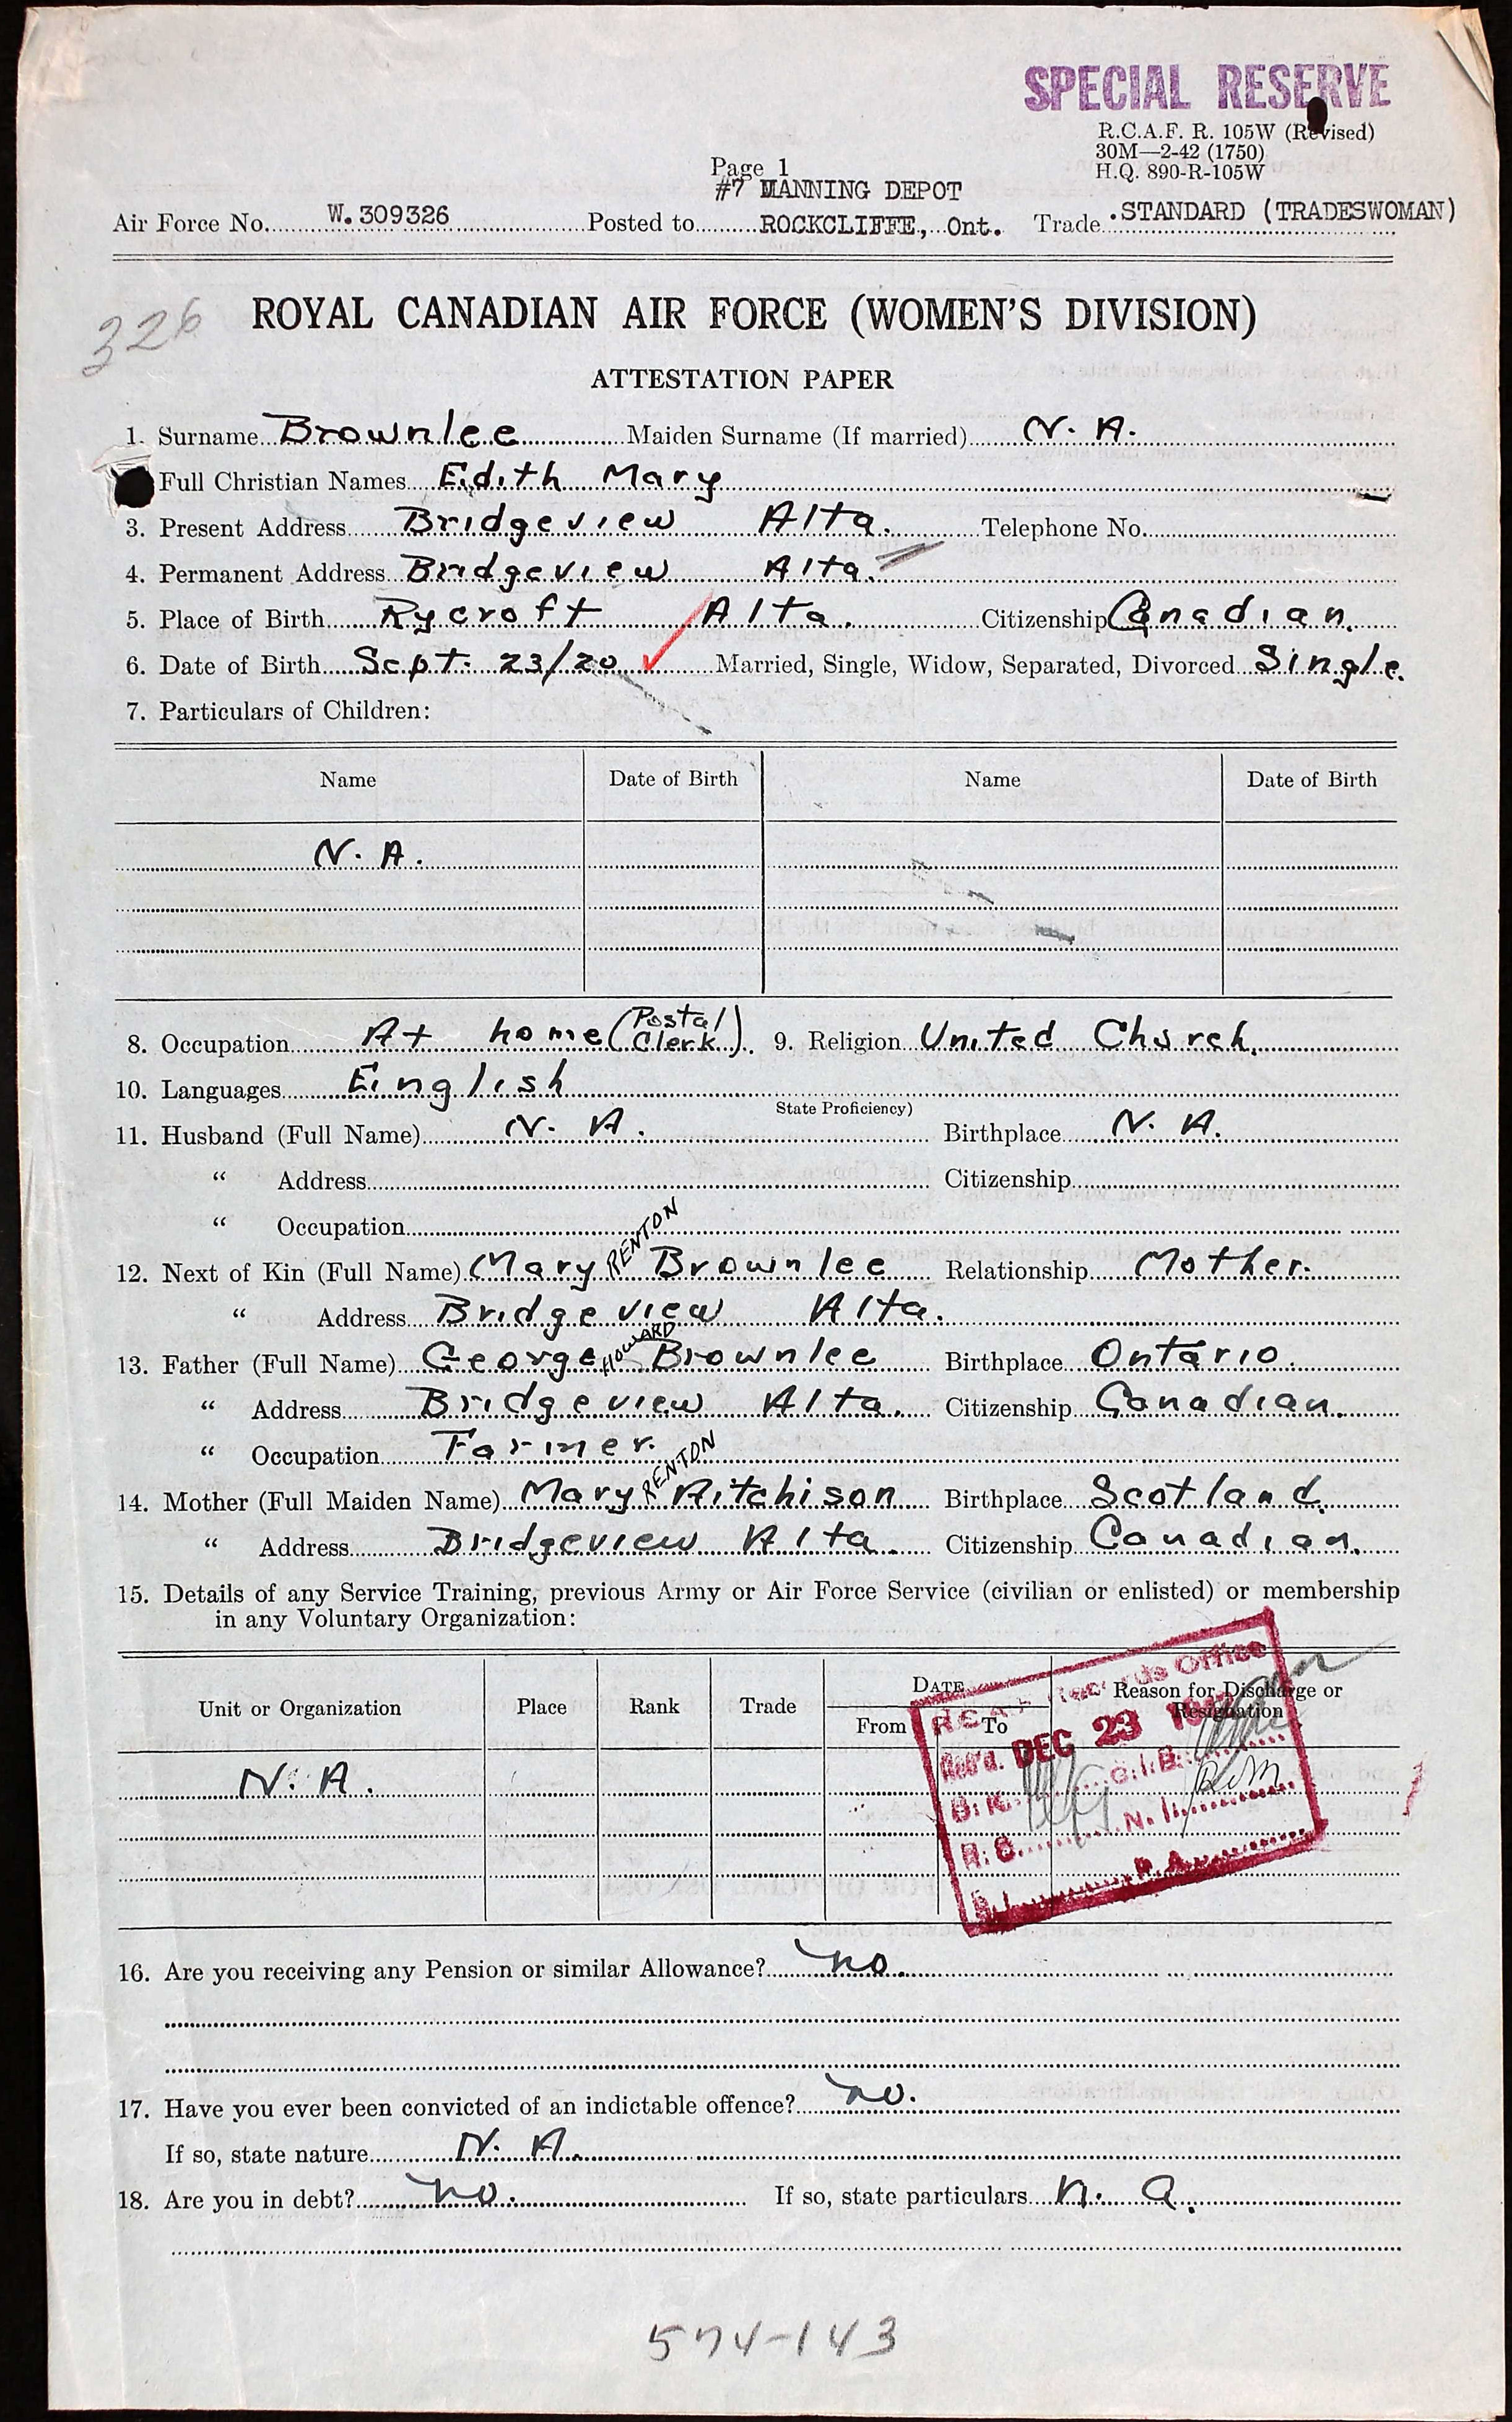 SPECIAL RESERVE
R.C.A.F. R. 105W (Revised)
30M—2-42 (1750)
H.Q. 890-R-105W
Page 1
#7 MANNING DEPOT
Air Force No. W.309326 Posted to ROCKCLIFFE, Ont. Trade STANDARD (TRADESWOMAN)
326
ROYAL CANADIAN AIR FORCE (WOMEN'S DIVISION)
ATTESTATION PAPER
1. Surname Brownlee Maiden Surname (If married) N. A.
Full Christian Names Edith Mary
3. Present Address Bridgeview Alta. Telephone No.
4. Permanent Address Bridgeview Alta.
5. Place of Birth Rycroft Alta. Citizenship Canadian.
6. Date of Birth Sept. 23/20 Married, Single, Widow, Separated, Divorced Single.
7. Particulars of Children:
Name Date of Birth Name Date of Birth
N. A.
8. Occupation At home (Postal Clerk). 9. Religion United Church.
10. Languages English
State Proficiency)
11. Husband (Full Name) N. A. Birthplace N. A.
" Address Citizenship
" Occupation
12. Next of Kin (Full Name) Mary RENTON Brownlee Relationship Mother.
" Address Bridgeview Alta.
13. Father (Full Name) George HOWARD Brownlee Birthplace Ontario.
" Address Bridgeview Alta. Citizenship Canadian.
" Occupation Farmer.
14. Mother (Full Maiden Name) Mary RENTON Aitchison Birthplace Scotland.
" Address Bridgeview Alta. Citizenship Canadian.
15. Details of any Service Training, previous Army or Air Force Service (civilian or enlisted) or membership
in any Voluntary Organization:
Unit or Organization Place Rank Trade DATE From To Reason for Discharge or Resignation
Records Office
Rec'd. DEC 23
N. A.
16. Are you receiving any Pension or similar Allowance? no.
17. Have you ever been convicted of an indictable offence? no.
If so, state nature N. A.
18. Are you in debt? no. If so, state particulars n. a.
574-143